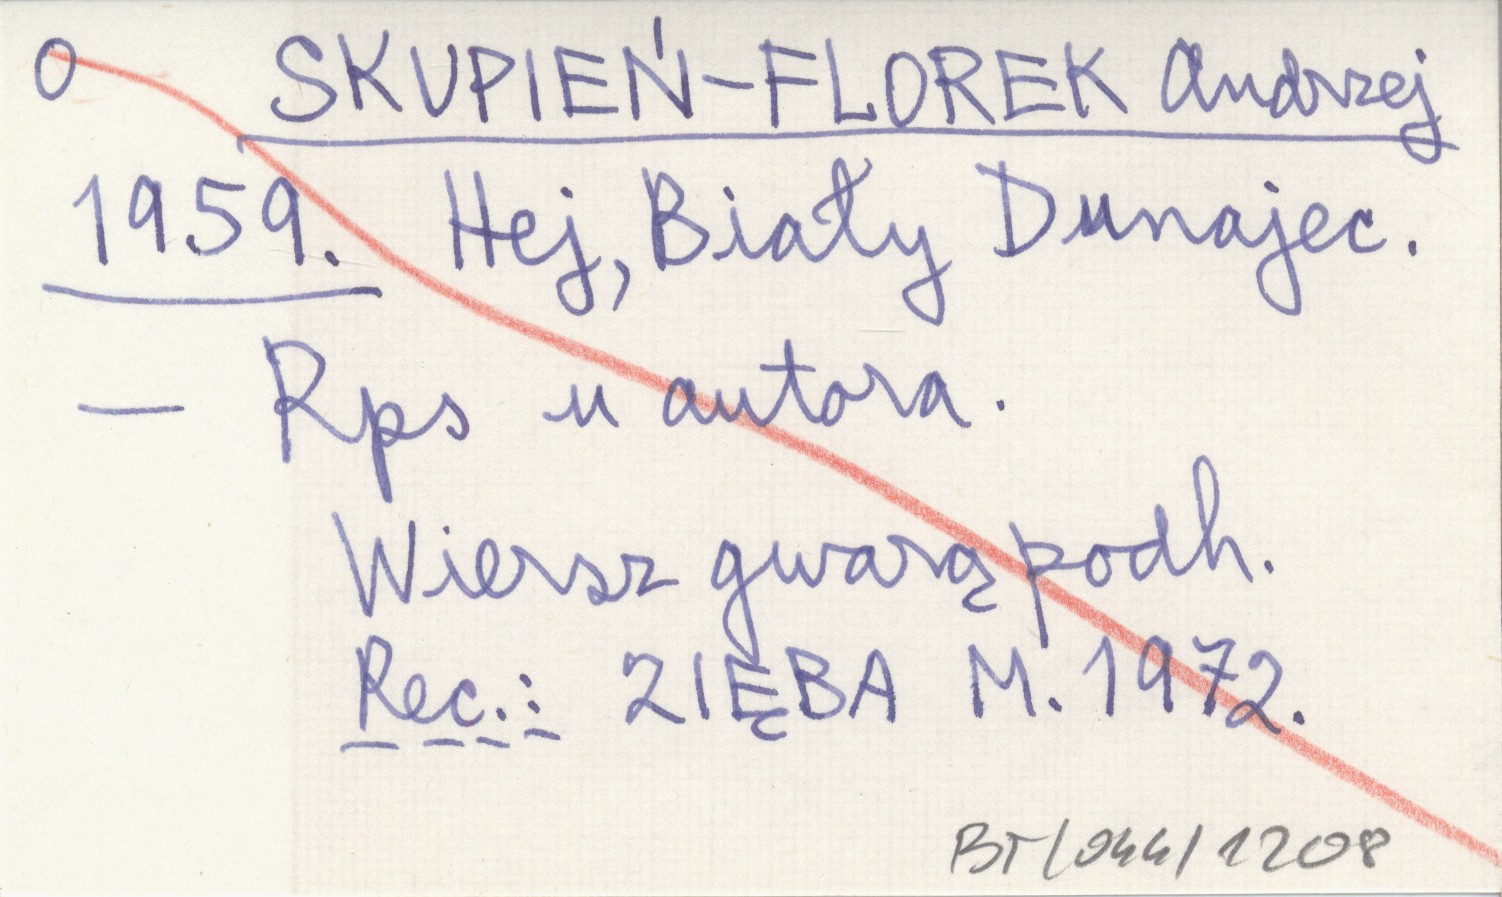 O SKUPIEŃ-FLOREK Andrzej
1959. Hej, Biały Dunajec.
— Rps u autora.
Wiersz gwarą podh.
Rec.: ZIĘBA M. 1972.
BT/044/1208